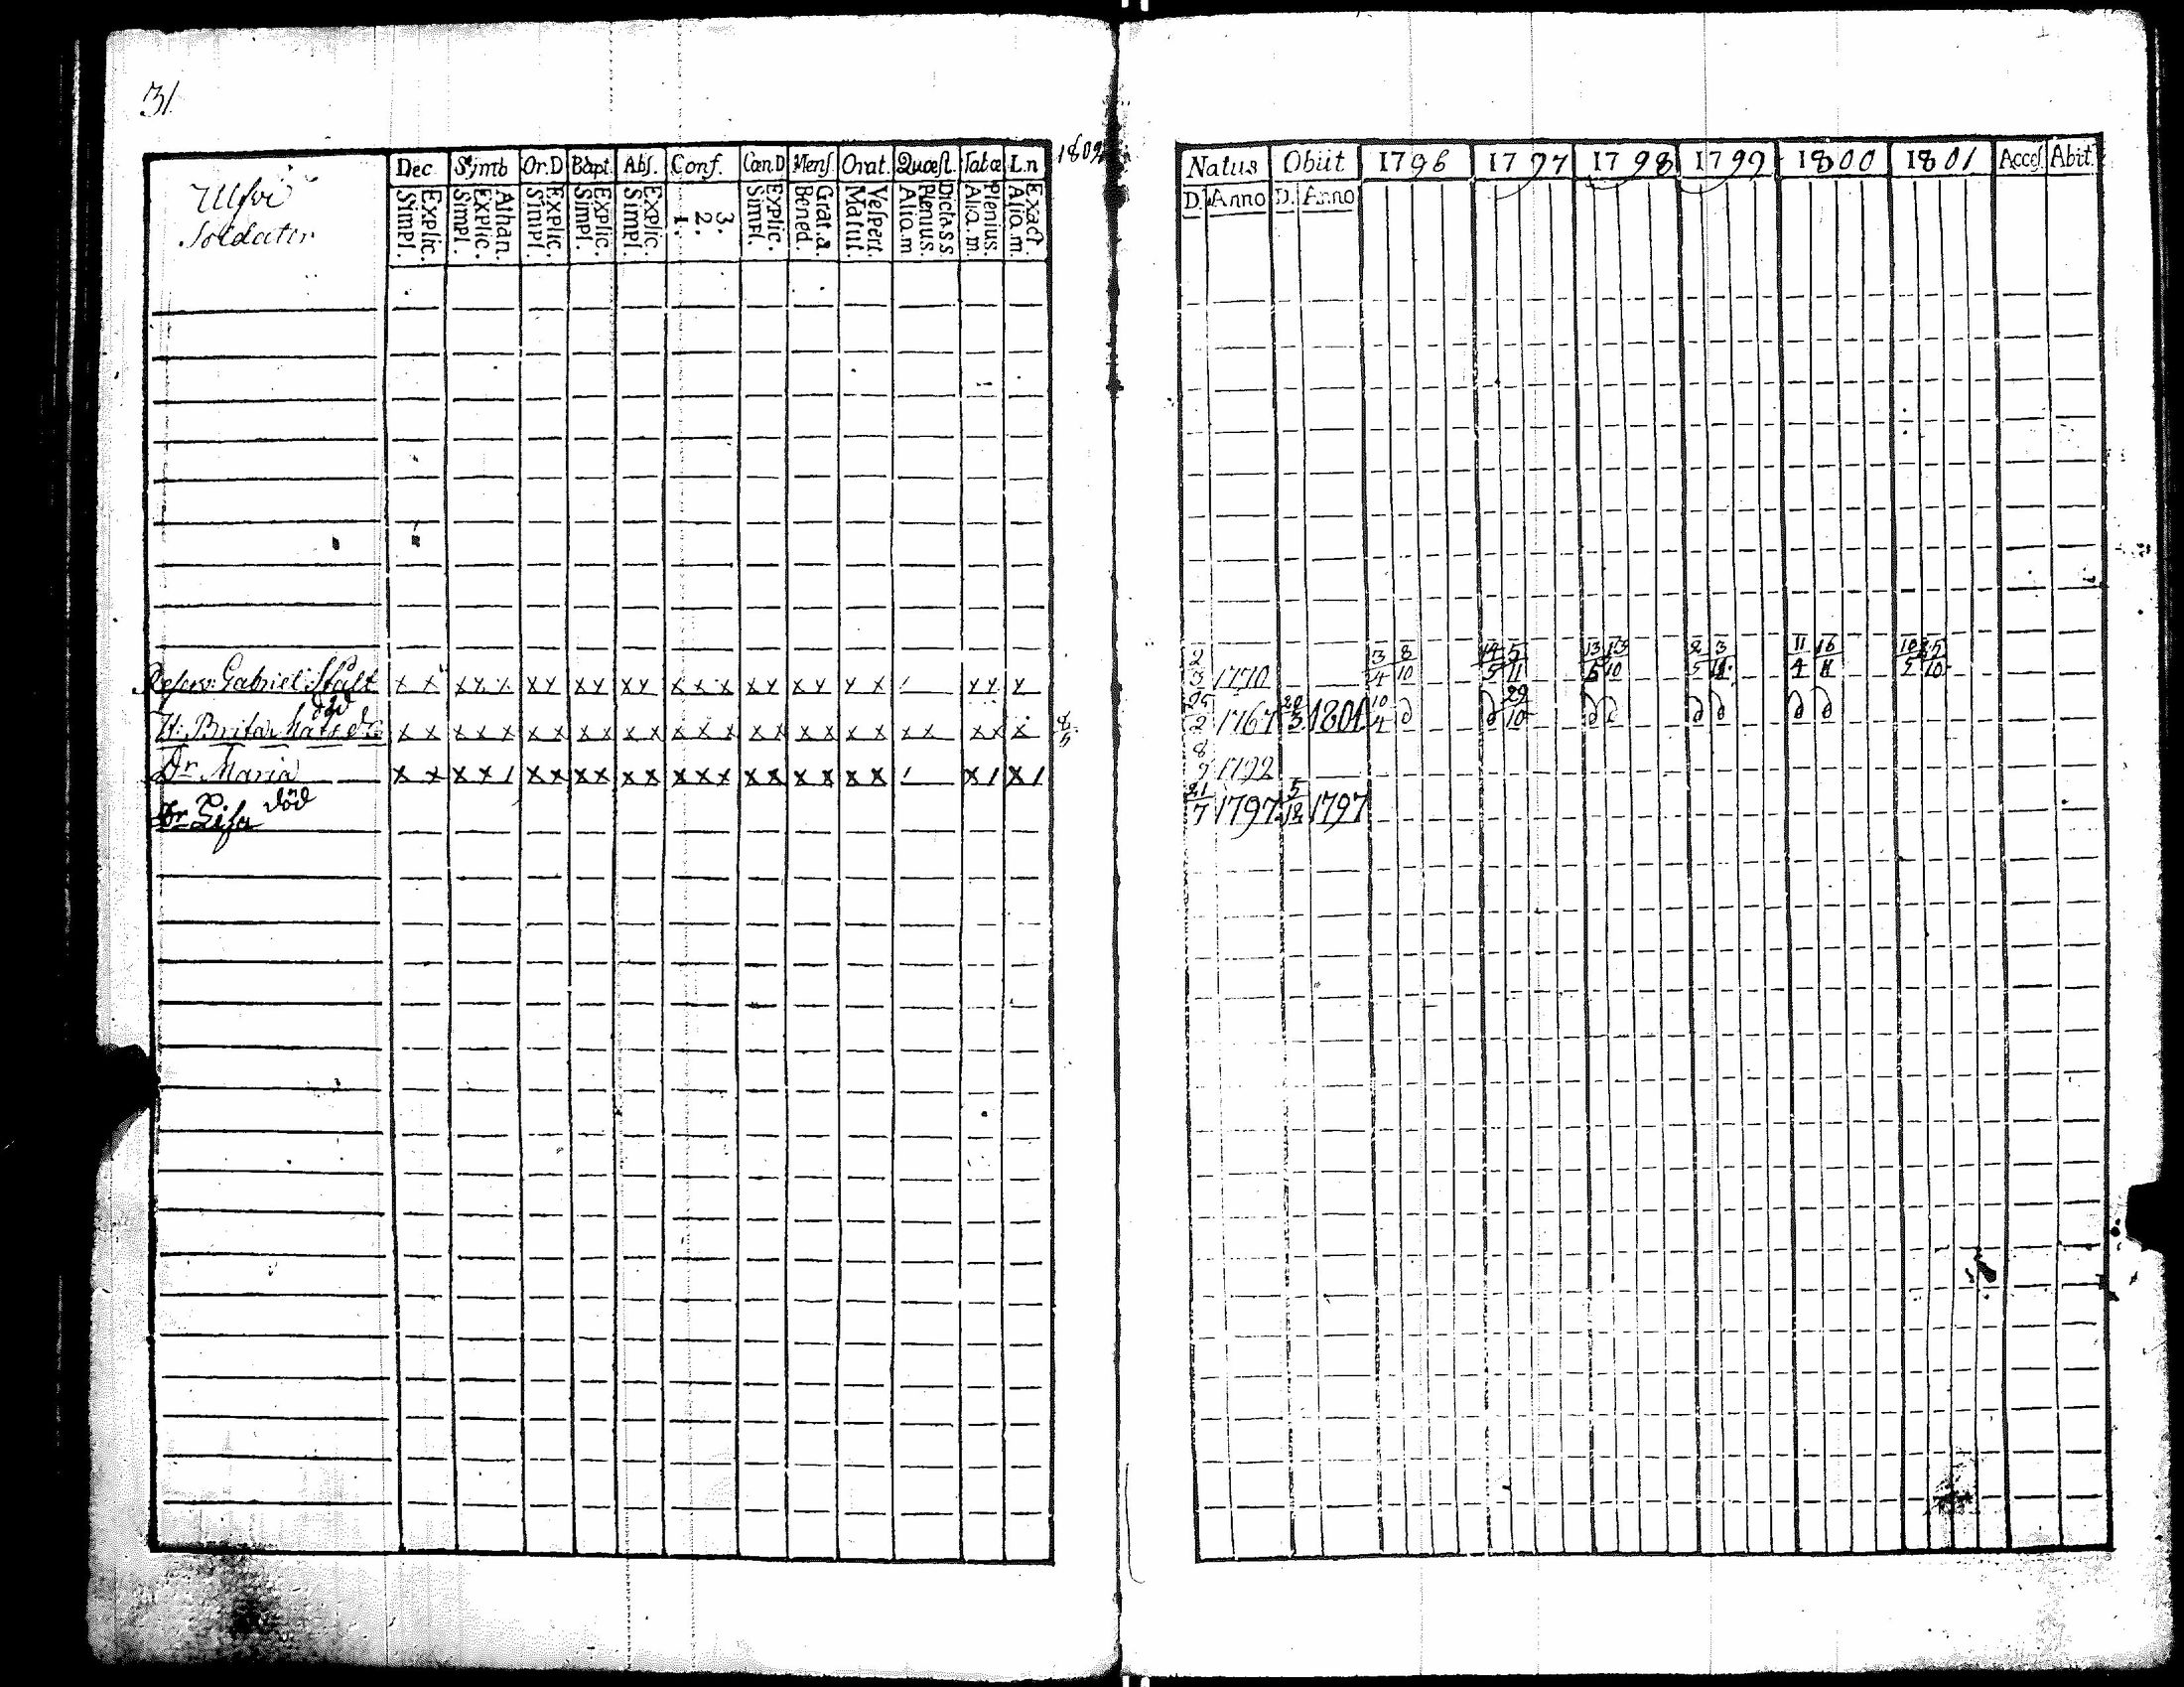 31.
Ulfvi
Soldater
Dec. Symb Or.D Bapt. Abs. Conf. Can.D Mens. Orat. Quæst. Tabæ L.n 1802
Explic. Simpl. Athan. Explic. Simpl. Explic. Simpl. Explic. Simpl. Explic. Simpl. 3. 2. 1. Explic. Simpl. Grat.a. Bened. Vespert. Matut. Dicta.s.s Plenius. Aliq.m Plenius. Aliq.m. Exact Aliq.m.
Reserv: Gabriel Stålt x x x x x x x x x x x x x x x x x x x x / x x x
död
H: Brita Matsd.r x x x x x x x x x x x x x x x x x x x x x x x x x 8/5
Dr Maria x x x x / x x x x x x x x x x x x x x x / x / x /
Dr Lisa död
Natus Obiit 1796 1797 1798 1799 1800 1801 Acces. Abit.
D. Anno D. Anno
2/3 1770 3/4 8/10 14/5 5/11 13/5 13/10 2/5 3/11 11/4 16/11 10/5 25/10
25/2 1767 20/3 1801 10/4 d d 29/10 d d d d d d
8/9 1792
21/7 1797 5/12 1797